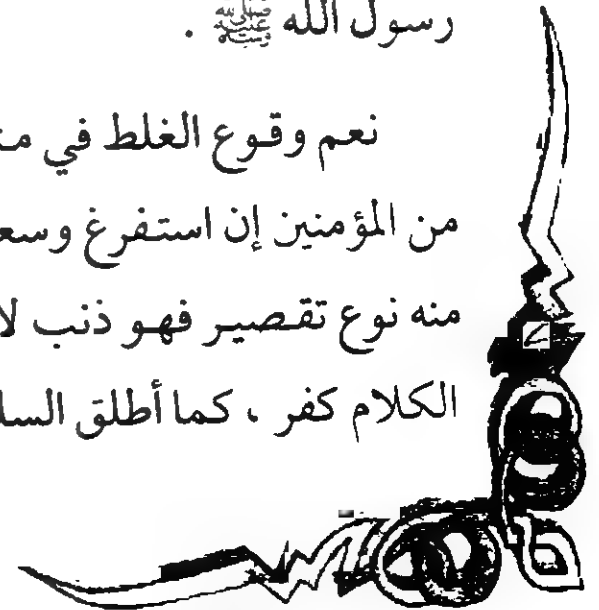 رسول الله ﷺ .
نعم وقوع الغلط في
من المؤمنين إن استفرغ
منه نوع تقصير فهو ذنب لا
الكلام كفر ، كما أطلق